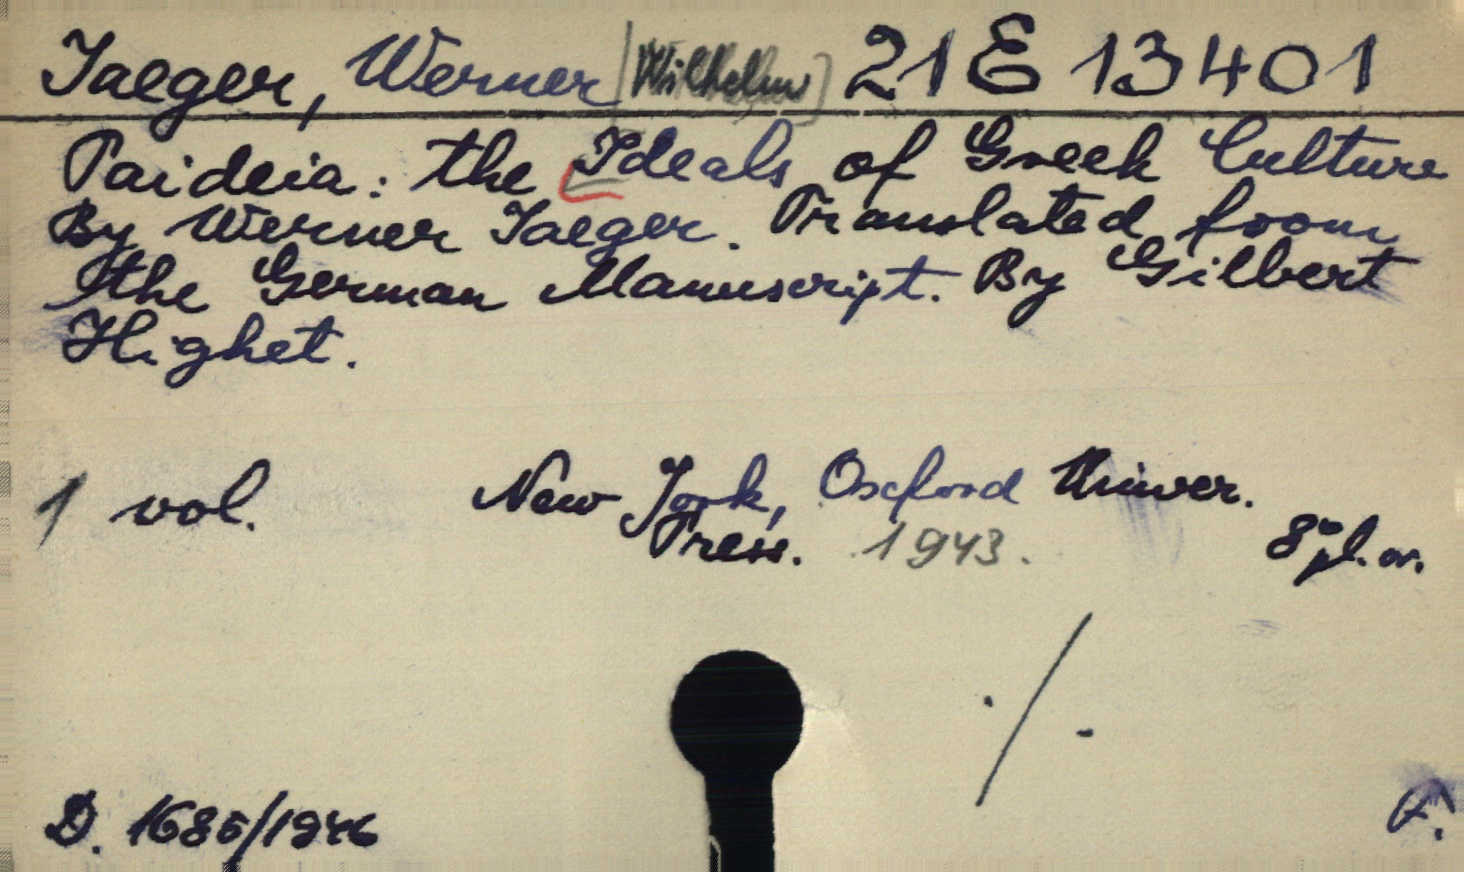 Jaeger, Werner [Wilhelm] 21 E 13401
Paideia: the Ideals of Greek Culture
By Werner Jaeger. Translated from
the German Manuscript. By Gilbert
Highet.
1 vol. New York, Oxford Univer.
Press. 1943. 8° pl. or.
./.
D. 1685/1946